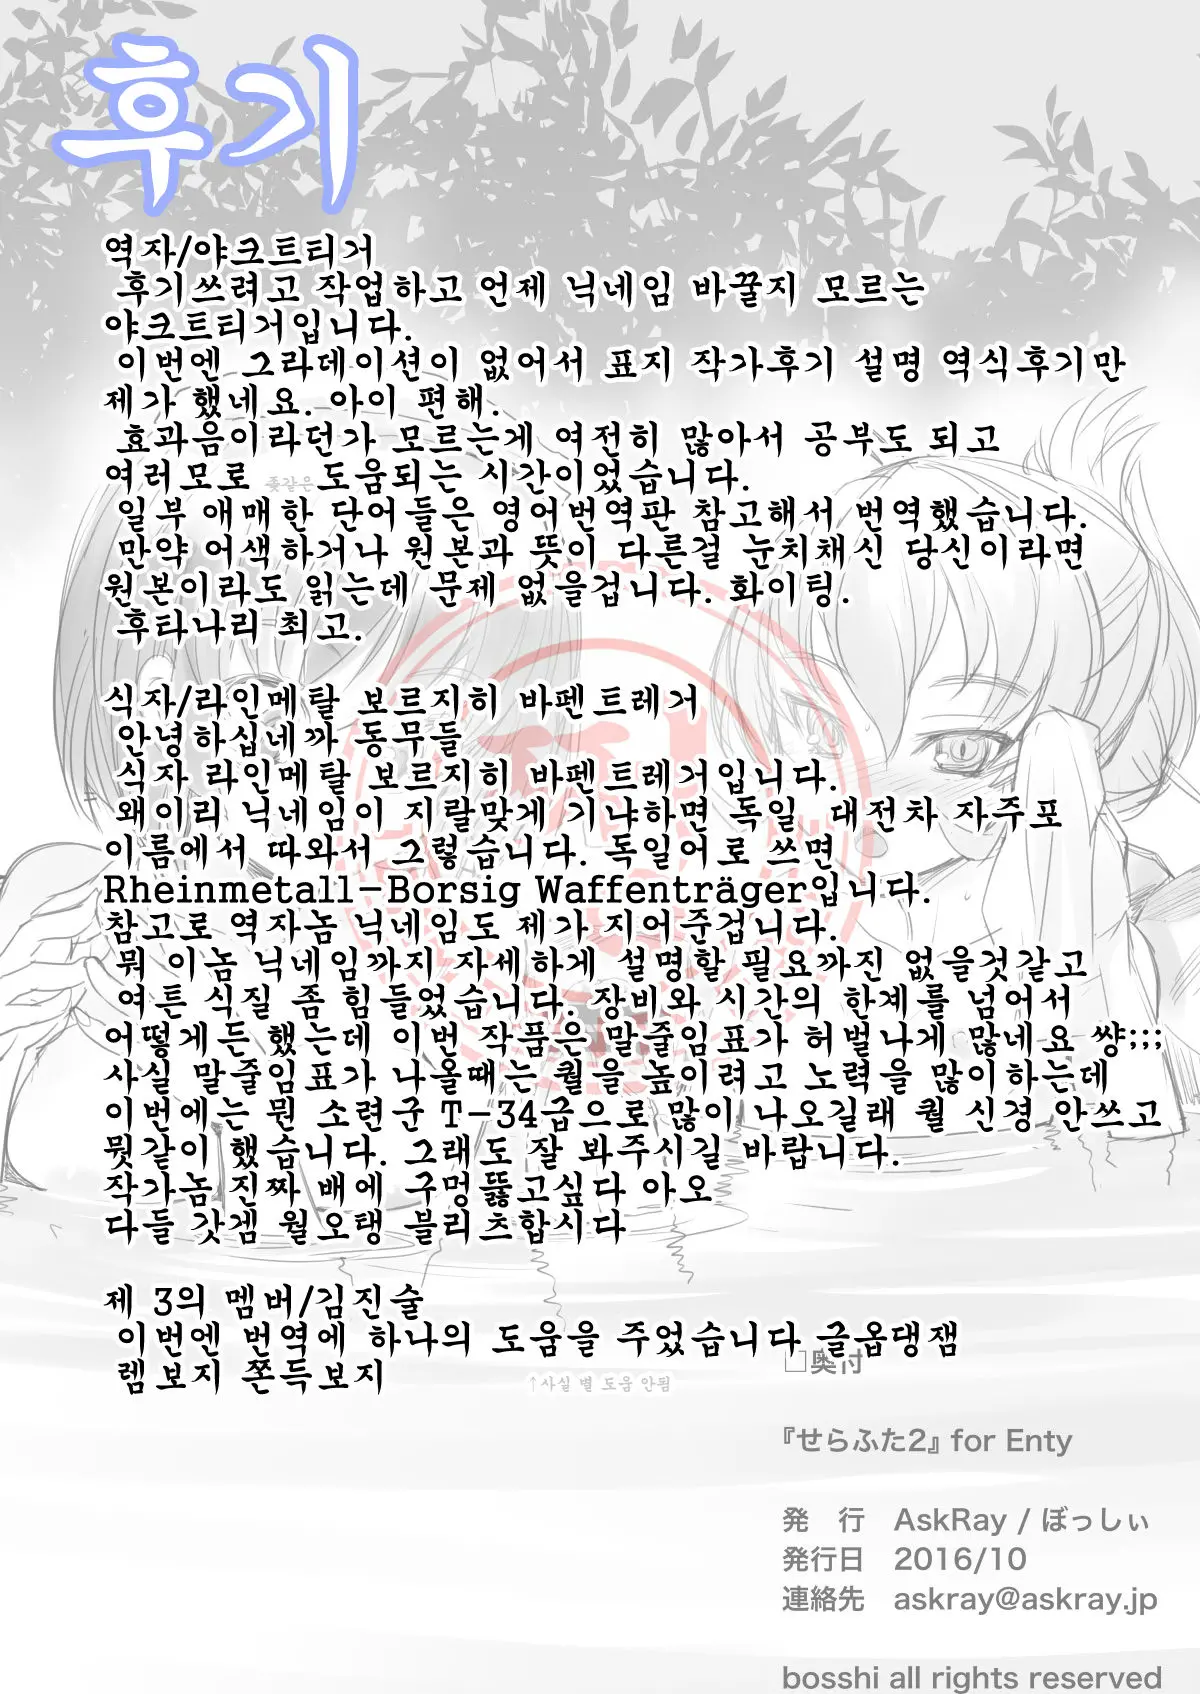 후기
역자/야크트티거
후기쓰려고 작업하고 언제 닉네임 바꿀지 모르는
야크트티거입니다.
이번엔 그라데이션이 없어서 표지 작가후기 설명 역식후기만
제가 했네요. 아이 편해.
효과음이라던가 모르는게 여전히 많아서 공부도 되고
여러모로 좆같은 도움되는 시간이었습니다.
일부 애매한 단어들은 영어번역판 참고해서 번역했습니다.
만약 어색하거나 원본과 뜻이 다른걸 눈치채신 당신이라면
원본이라도 읽는데 문제 없을겁니다. 화이팅.
후타나리 최고.
식자/라인메탈 보르지히 바펜트레거
안녕하십네까 동무들
식자 라인메탈 보르지히 바펜트레거입니다.
왜이리 닉네임이 지랄맞게 기냐하면 독일 대전차 자주포
이름에서 따와서 그렇습니다. 독일어로 쓰면
Rheinmetall-Borsig Waffenträger입니다.
참고로 역자놈 닉네임도 제가 지어준겁니다.
뭐 이놈 닉네임까지 자세하게 설명할 필요까진 없을것같고
여튼 식질 좀 힘들었습니다. 장비와 시간의 한계를 넘어서
어떻게든 했는데 이번 작품은 말줄임표가 허벌나게 많네요 썅;;;
사실 말줄임표가 나올때는 퀄을 높이려고 노력을 많이하는데
이번에는 뭔 소련군 T-34급으로 많이 나오길래 퀄 신경 안쓰고
뭣같이 했습니다. 그래도 잘 봐주시길 바랍니다.
작가놈 진짜 배에 구멍뚫고싶다 아오
다들 갓겜 월오탱 블리츠합시다
제 3의 멤버/김진술
이번엔 번역에 하나의 도움을 주었습니다 글옵댕잼
렘보지 쫀득보지
↑사실 별 도움 안됨
□奥付
『せらふた2』 for Enty
発 行 AskRay / ぼっしぃ
発行日 2016/10
連絡先 askray@askray.jp
bosshi all rights reserved